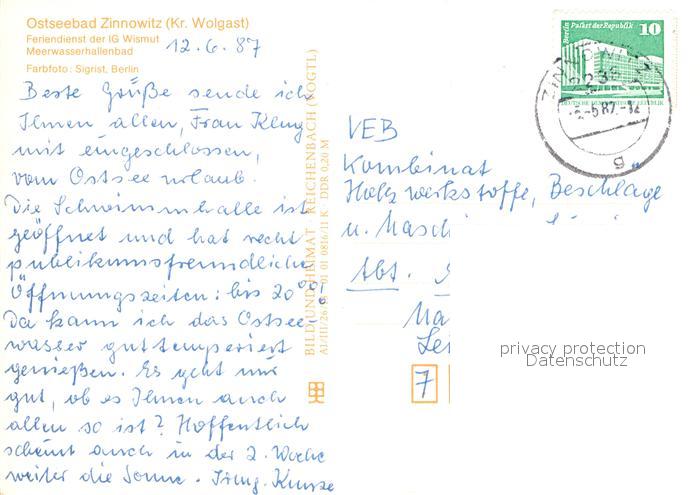 Ostseebad Zinnowitz (Kr. Wolgast)
Feriendienst der IG Wismut
Meerwasserhallenbad
12.6.87
Farbfoto: Sigrist, Berlin
Beste Grüße sende ich
Ihnen allen, Frau Klug
mit eingeschlossen,
vom Ostseeurlaub.
Die Schwimmhalle ist
geöffnet und hat recht
publikumsfreundliche
Öffnungszeiten: bis 20⁰⁰!
Da kann ich das Ostsee-
wasser guttemperiert
genießen. Es geht mir
gut, ob es Ihnen auch
allen so ist? Hoffentlich
scheint auch in der 2. Woche
weiter die Sonne. Irmg. Kunze
BILD UND HEIMAT · REICHENBACH (VOGTL)
A1/III/26/13 01 01 0816/11 K DDR 0,20 M
Berlin Palast der Republik
10
DEUTSCHE DEMOKRATISCHE REPUBLIK
ZINNOWITZ
VEB
Kombinat
Holzwerkstoffe, Beschläge
u. Masch
Abt.
Ma
Lei
7
privacy protection
Datenschutz